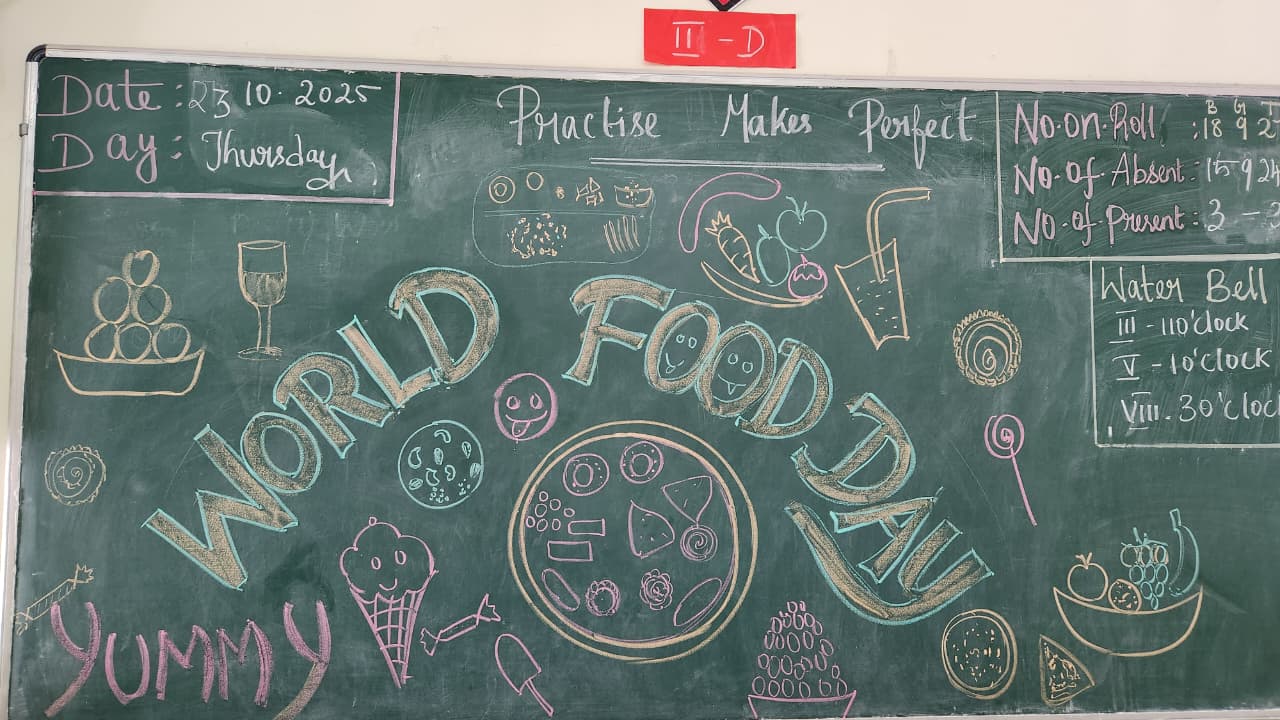 III - D
Date : 23 10 . 2025
Day : Thursday
Practise Makes Perfect
B G T
No. on. Roll : 18 9 2
No. of. Absent : 15 9 24
No. of. Present : 3 - 3
Water Bell
III - 11 O'clock
V - 1 O'clock
VIII . 3 O'cloc
WORLD FOOD DAY
YUMMY